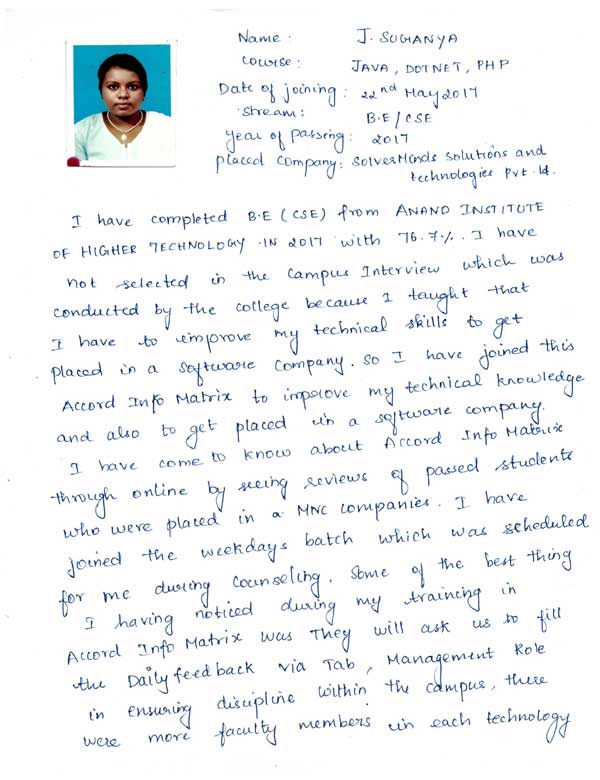 Name : J. SUGANYA
Course : JAVA, DOTNET, PHP
Date of joining : 22nd May 2017
Stream : B.E / CSE
Year of Passing : 2017
Placed Company : SolverMinds Solutions and
technologies Pvt. ltd.
I have completed B.E (CSE) from ANAND INSTITUTE
OF HIGHER TECHNOLOGY IN 2017 with 76.7%. I have
not selected in the Campus Interview which was
conducted by the college because I taught that
I have to improve my technical skills to get
placed in a software company. So I have joined this
Accord Info Matrix to improve my technical knowledge
and also to get placed in a software company.
I have come to know about Accord Info Matrix
through online by seeing reviews of passed students
who were placed in a MNC companies. I have
joined the weekdays batch which was scheduled
for me during Counseling. Some of the best thing
I having noticed during my training in
Accord Info Matrix was They will ask us to fill
the Daily feedback via Tab, Management Role
in ensuring discipline within the campus, there
were more faculty members in each technology